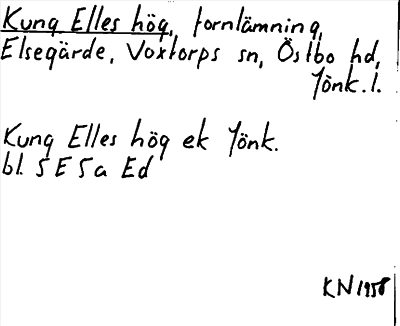 Kung Elles hög, fornlämning,
Elsegärde, Voxtorps sn, Östbo hd,
Jönk. l.
Kung Elles hög ek Jönk.
bl. 5 E 5a Ed
KN 1958